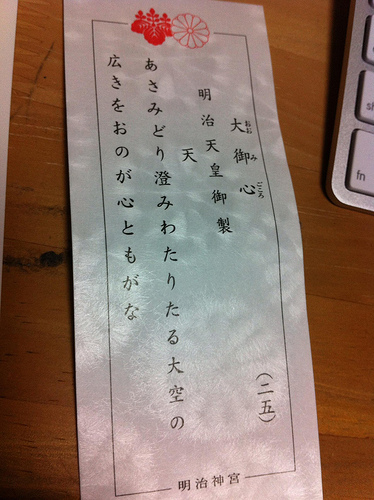 大御心
おおみごころ
(二五)
明治天皇御製
天
あさみどり澄みわたりたる大空の
広きをおのが心ともがな
明治神宮
fn
sh